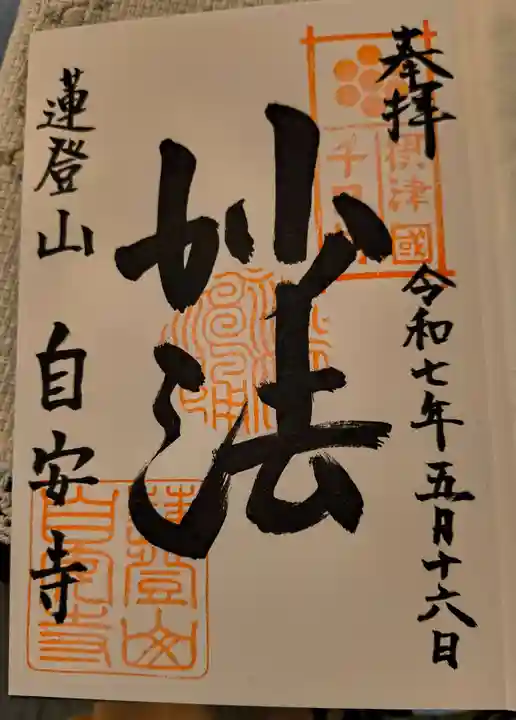 奉拝
摂津國
千日前
令和七年五月十六日
妙法
蓮登山 自安寺
蓮登山
自安寺